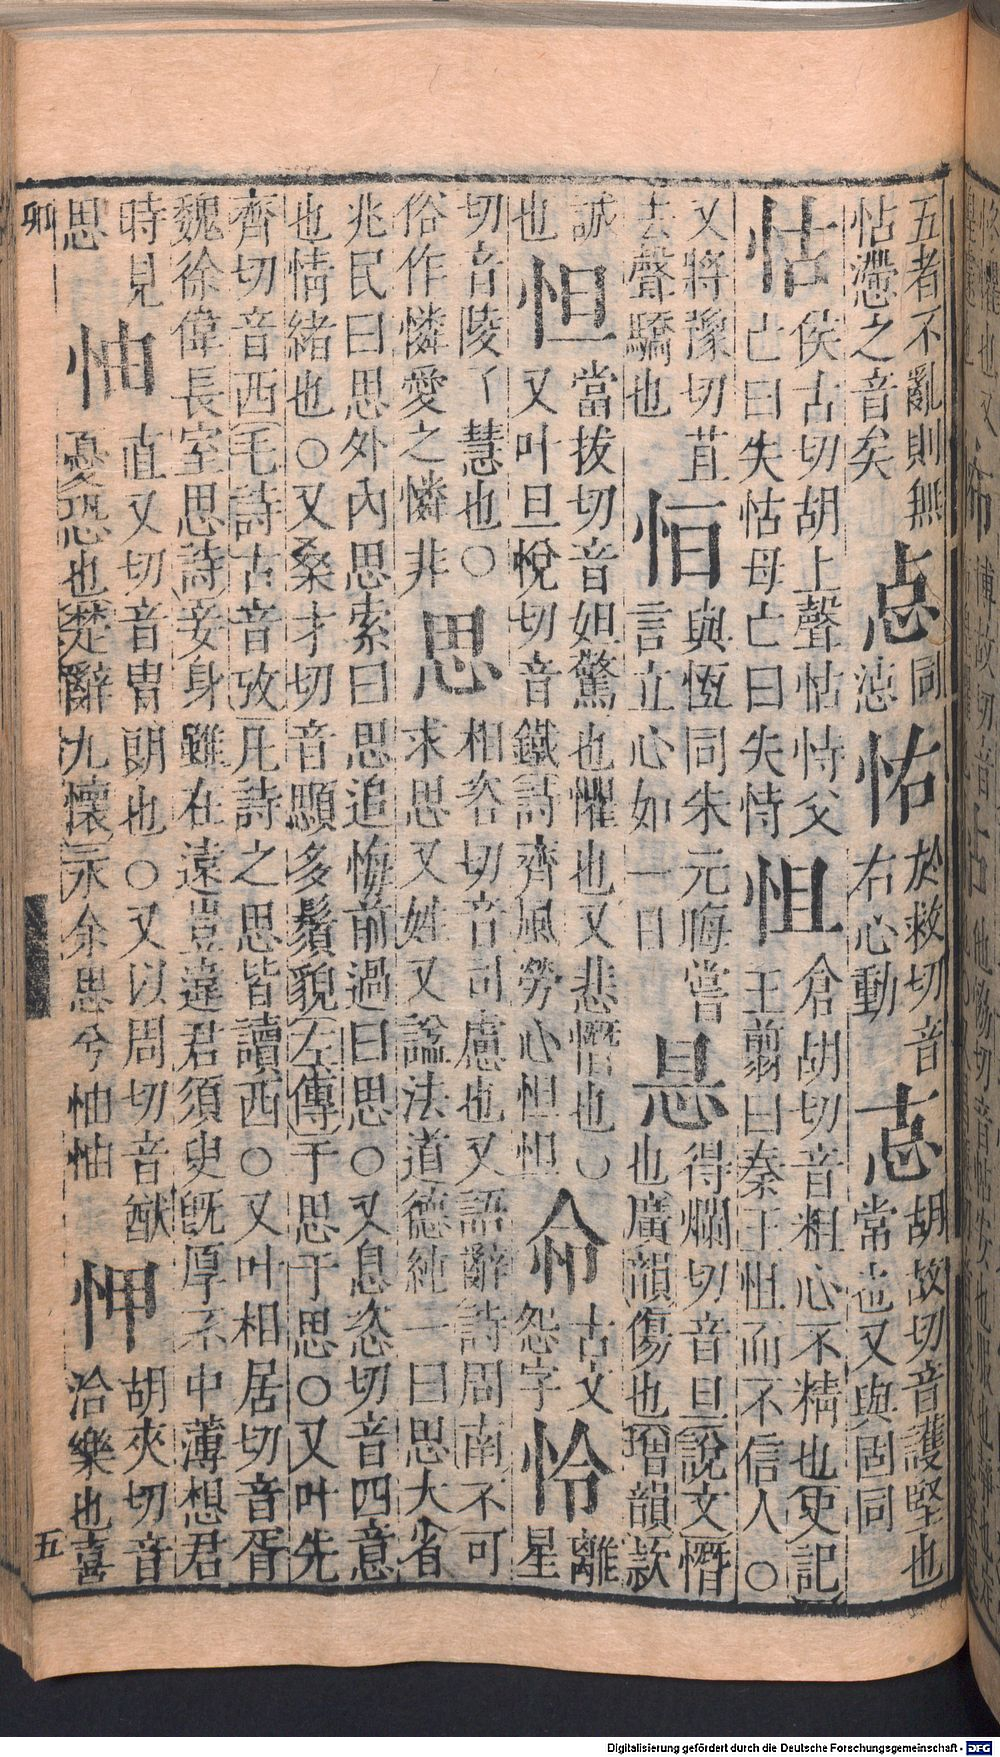 五者不亂則無
怗懘之音矣
㤐
同
惉
㤑
於救切音
右心動
怘
胡故切音護堅也
常也又與固同
怙
侯古切胡上聲怙恃父
亡曰失怙母亡曰失恃
怚
倉胡切音粗心不精也史記
王翦曰秦王怚而不信人○
又將豫切苴
去聲驕也
恒
與恆同朱元晦嘗
言立心如一日
得爛切音旦說文憯
也廣韻傷也增韻款
誠
也
怛
當拔切音妲驚也懼也又悲憯也○
又叶旦悅切音鐵詩齊風勞心怛怛
古文
怨字
怜
離
星
切音陵了慧也○
俗作憐愛之憐非
思
相咨切音司慮也又語辭詩周南不可
求思又姓又諡法道德純一曰思大省
兆民曰思外內思索曰思追悔前過曰思○又息恣切音四意
也情緒也○又桑才切音顋多鬚貌左傳于思于思○又叶先
齊切音西毛詩古音攷凡詩之思皆讀西○又叶相居切音胥
魏徐偉長室思詩妾身雖在遠豈違君須臾旣厚不中薄想君
時見
思
怞
直又切音冑朗也○又以周切音猷
憂恐也楚辭九懷永余思兮怞怞
胡夾切音
洽樂也喜
卯
五
Digitalisierung gefördert durch die Deutsche Forschungsgemeinschaft - DFG